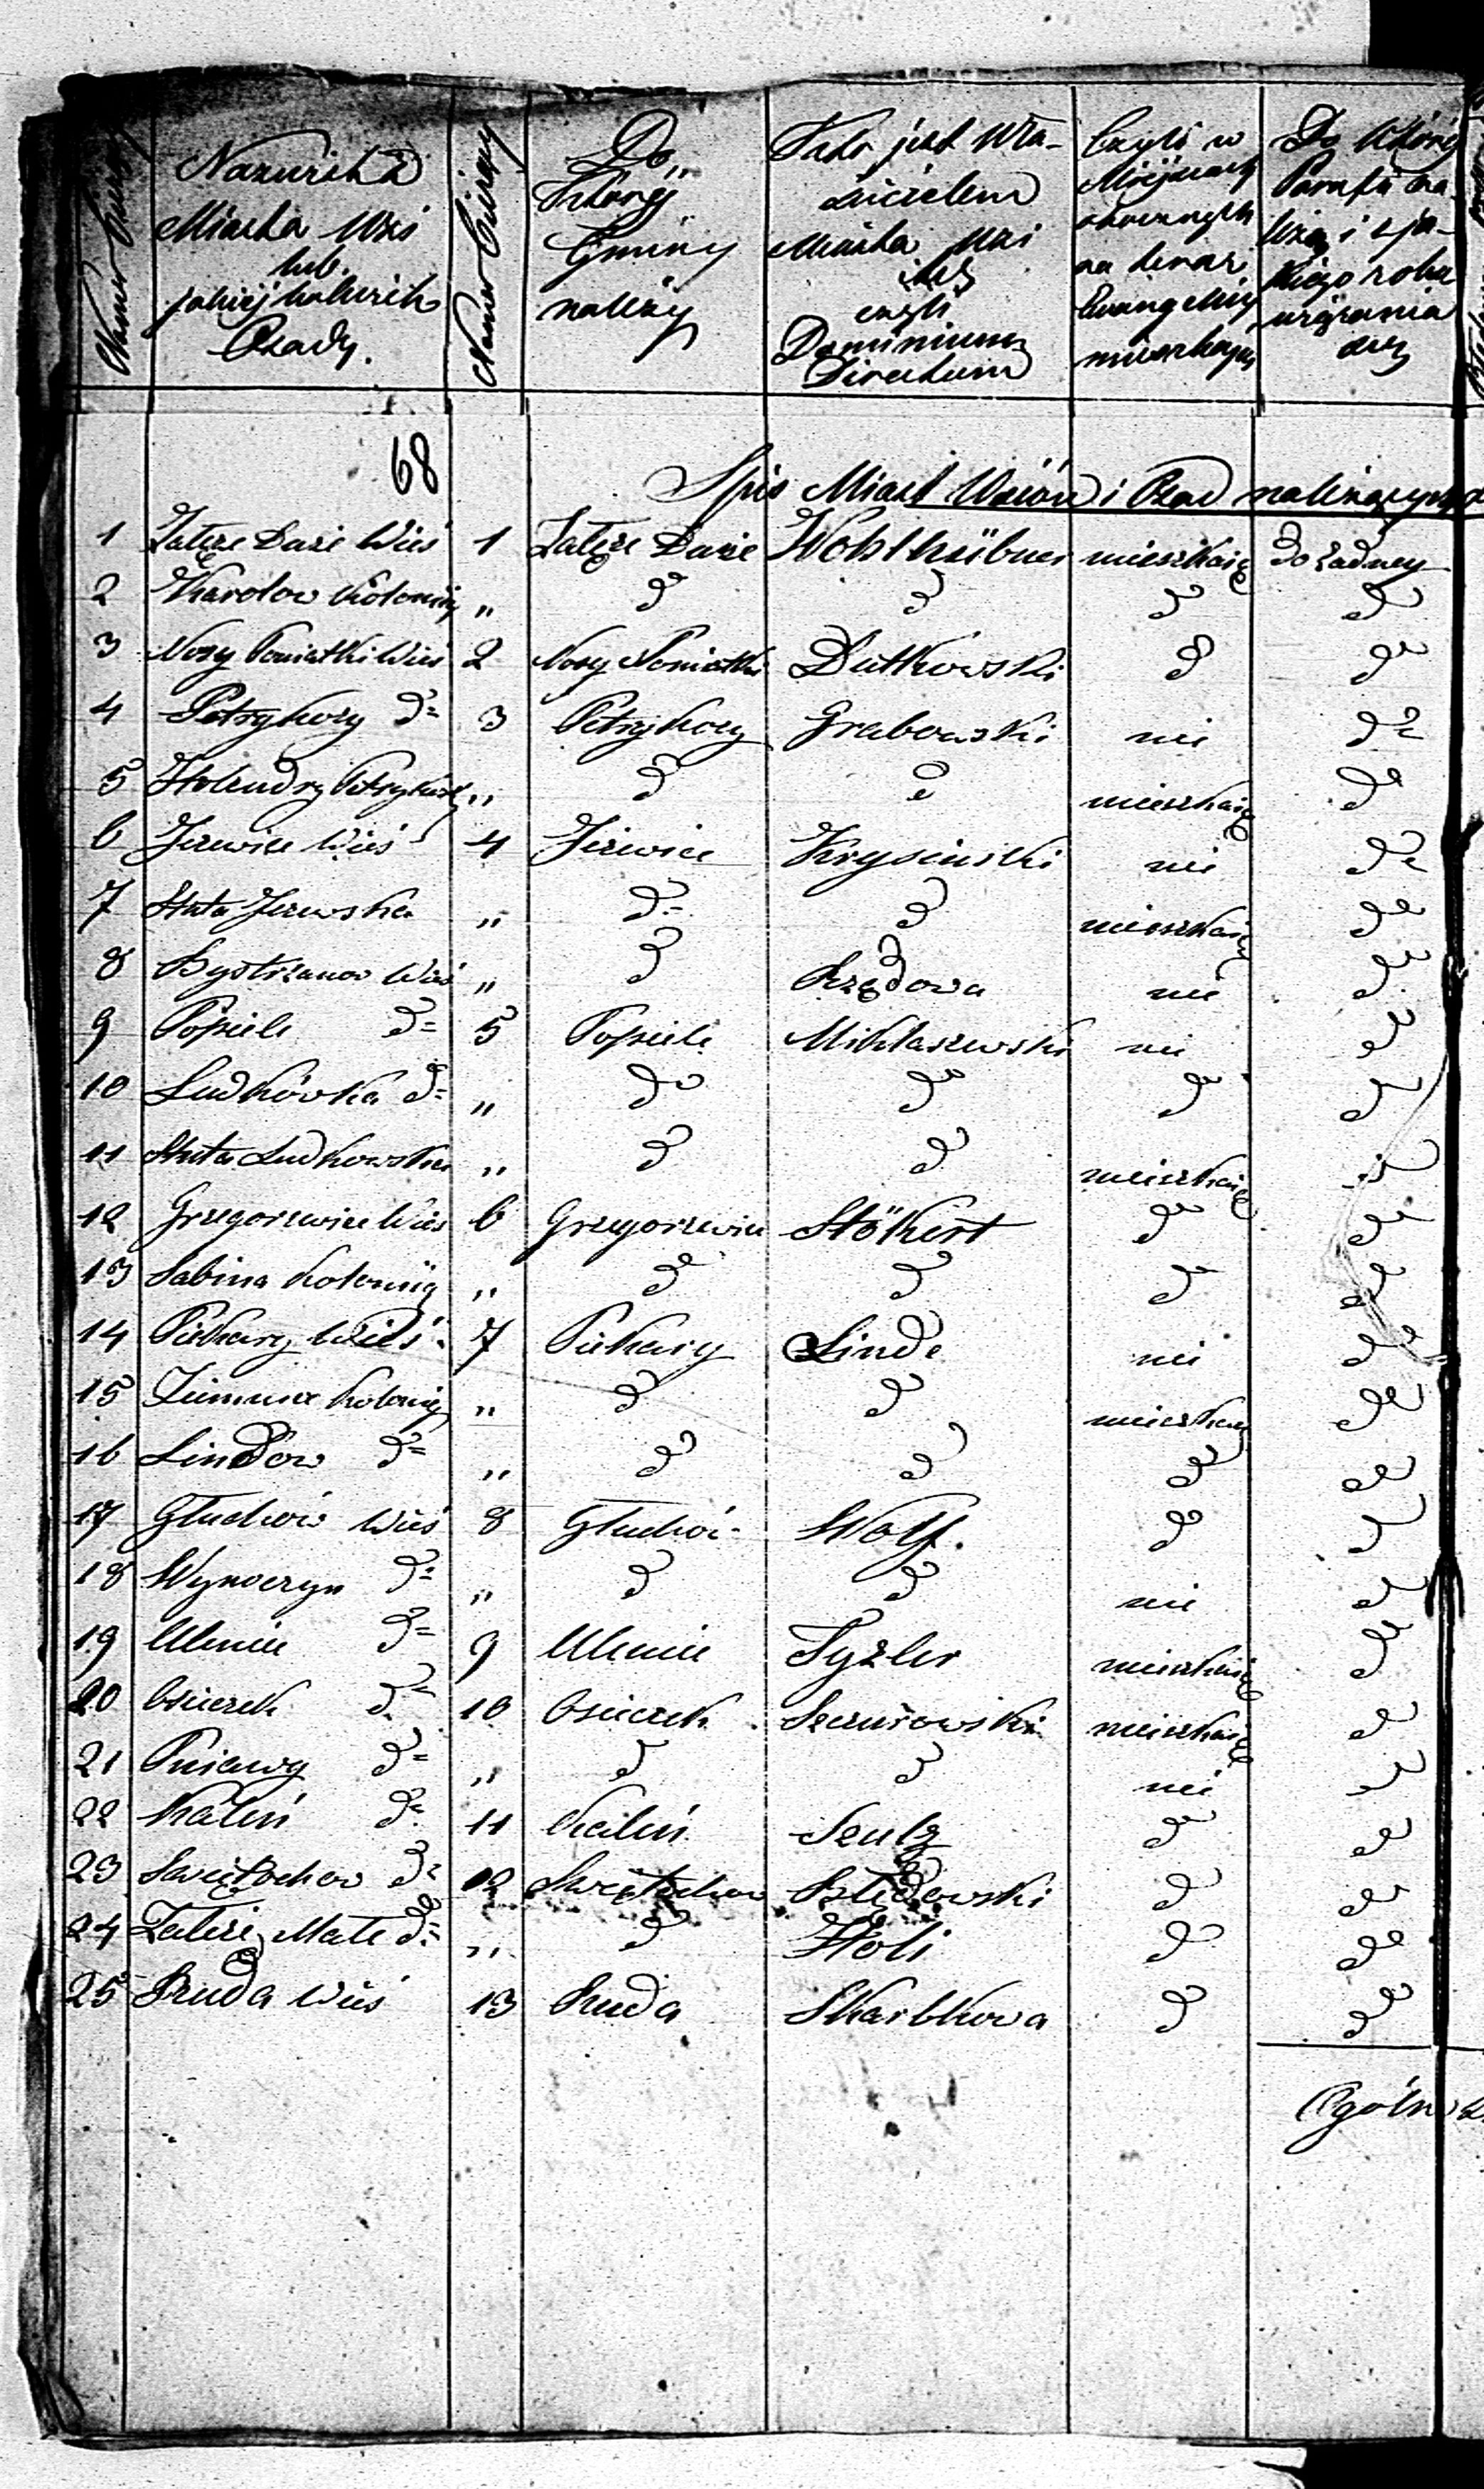 Numer Bieżący
Nazwiska Miasta Wsi lub jakiejkolwiek Osady.
Numer Bieżący
Do Którey Gminy należy
Kto jest Właścicielem Miasta Wsi czyli Dominium Directum
Czyli w Miejscach na teraz Ewangelicy mieszkają
Do którey Parafii i z jakiego
68
Spis Miast Wsiów i Osad należących
1 Zatęże Duże Wieś 1 Zatęże Duże Wohlhübner mieszkaią do żadney
2 Karolow Kolonia „ d d do do
3 Nosy Poniatki Wieś 2 Nosy Poniatki Dutkowski d do
4 Petrykozy do 3 Petrykozy Grabowski nie do
5 Holendry Petrykoz „ d d mieszkaią do
6 Jeżewice Wieś 4 Jeżewice Krysinski nie do
7 Huta Jezewska „ do d mieszkaią do
8 Bystrzanow Wieś „ d Rządowa nie do
9 Popiele do 5 Popiele Miklaszewski nie do
10 Ludkówka do „ do do do do
11 Huta Ludkowska „ d d mieszkaią d
12 Grzegorzewice Wieś 6 Grzegorzewice Stökert do do
13 Sabina Kolonia „ d d d do
14 Piekary Wieś 7 Piekary Linde nie do
15 Kolonia „ d d mieszkaią do
16 Lindow do „ d d d do
17 Głuchów Wieś 8 Głuchów Wolf. do d
18 Wynoczyn do „ d d nie do
19 Ulenice do 9 Ulenice Tyzler mieszkaią do
20 Osieczek do 10 Osieczek Szczurowski mieszkaią do
21 Pniewy do „ d d nie do
22 Kalin do 11 Kalin Szulz do do
23 Swiętochow do 12 Swiętochow d do
24 Zatęże Małe do „ d Holi do do
25 Ruda Wieś 13 Ruda Skarbkowa do do
Ogólna